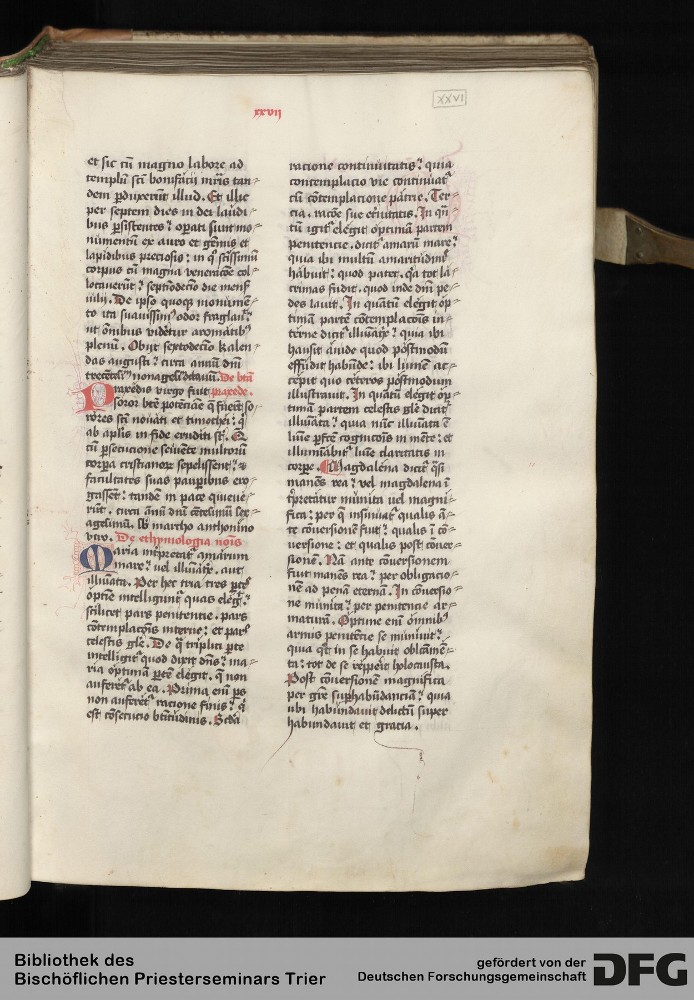 xxvii
XXVI
et sic cū magno labore ad
templū sct̄i bonifacii mr̄is tan⸗
dem ꝑduxerūt illud. Et illic
per septem dies in dei laudi⸗
bus ꝑsistentes: oꝑati sunt mo⸗
numentū ex auro et gemis et
lapidibus preciosis: in qͦ sc̄issimū
corpus cū magna
locauerūt: septiodecīo die mens̄
iulii. De ipso quoqꝫ monumē⸗
to ita suauissimꝰ odor fraglauit:
ut om̄ibus videret᷑ aromatibꝫ
plenū. Obiit sextodecīo kalen⸗
das augusti: circa annū dn̄i
De btā
Praxedis virgo fuit praxede.
soror bte potēciane q̄ fuer̄t so⸗
rores sct̄i nouati et timothei: qͥ
ab apl̄is in fide eruditi st̄. Q
cū ꝑsecucione seuiente multorū
corꝑa cristianorꝫ sepelissent: ⁊
facultates suas pauꝑibus ero⸗
gassent: tandē in pace quieue⸗
rūt. circa annū dn̄i centesimū sex⸗
agesimū. sb̄ marcho anthonino
vero. De ethymologia nois
Maria int̄pretat᷑ amarum
mare: vel illuīat᷑x. aut
illuīata. Per hec tria tres ꝑtes
optīe intelligunt᷑ quas eleḡt:
scilicet pars penitentie. pars
cōtemplacōis interne: et pars
celestis gl̄e. De qͣ triplici ꝑte
intelligit᷑ quod dixit dn̄s: ma⸗
ria optimā ꝑtē elegit. q̄ non
auferet᷑ ab ea. Prima em̄ ꝑs
non auferet᷑ racione finis: qͥ
est cōsecucio btītudinis. Scd̄a
racione continuitatis: quia
contemplacio vie continuat᷑
cū cōtemplacione patrie. Ter⸗
cia. racōe sue et̄nitatis. In qn̄⸗
tū igit᷑ elegit optimā partem
penitencie. dicit᷑ amarū mare:
quia ibi multū amaritudīs
habuit: quod patet. qͣ tot la⸗
crimas fudit. quod inde dn̄i pe⸗
des lauit. In quātū elegit op⸗
timā partē cōtemplacōis in⸗
terne dicit᷑ illuīat᷑x: quia ibi
hausit auide quod postmodū
effudit habūde: ibi lumē ac⸗
cepit quo ceteros postmodum
illustrauit. In quātū elegit op⸗
timam partem celestis gl̄e dicit᷑
illuīata: quia nūc illuīata ē
luīe ꝑfcē cognicōis in mente: et
illuminabit᷑ luīe claritatis in
corꝑe. Magdalena dicit᷑ qͣsi
manēs rea: vel magdalena ī⸗
ꝑpretatur munita vel magni⸗
fica: per q̄ insinuat᷑ qualis ā⸗
te cōuersionē fuit: qualis ī cō⸗
uersione: et qualis post cōuer⸗
sionē. Nā ante cōuersionem
fuit manēs rea: per obligacio⸗
nē ad penā eternā. In cōuersio⸗
ne munita: per penitencie ar⸗
maturā. Optime em̄ om̄ibꝫ
armis penitēcie se muniuit:
quia qͦt in se habuit oblcāmē⸗
ta: tot de se repperit holocausta.
Post cōuersionem magnifica
per gr̄e suꝑhabūdanciā: quia
ubi habūndauit delictū super
habundauit et gracia.
Bibliothek des
Bischöflichen Priesterseminars Trier
gefördert von der
Deutschen Forschungsgemeinschaft
DFG